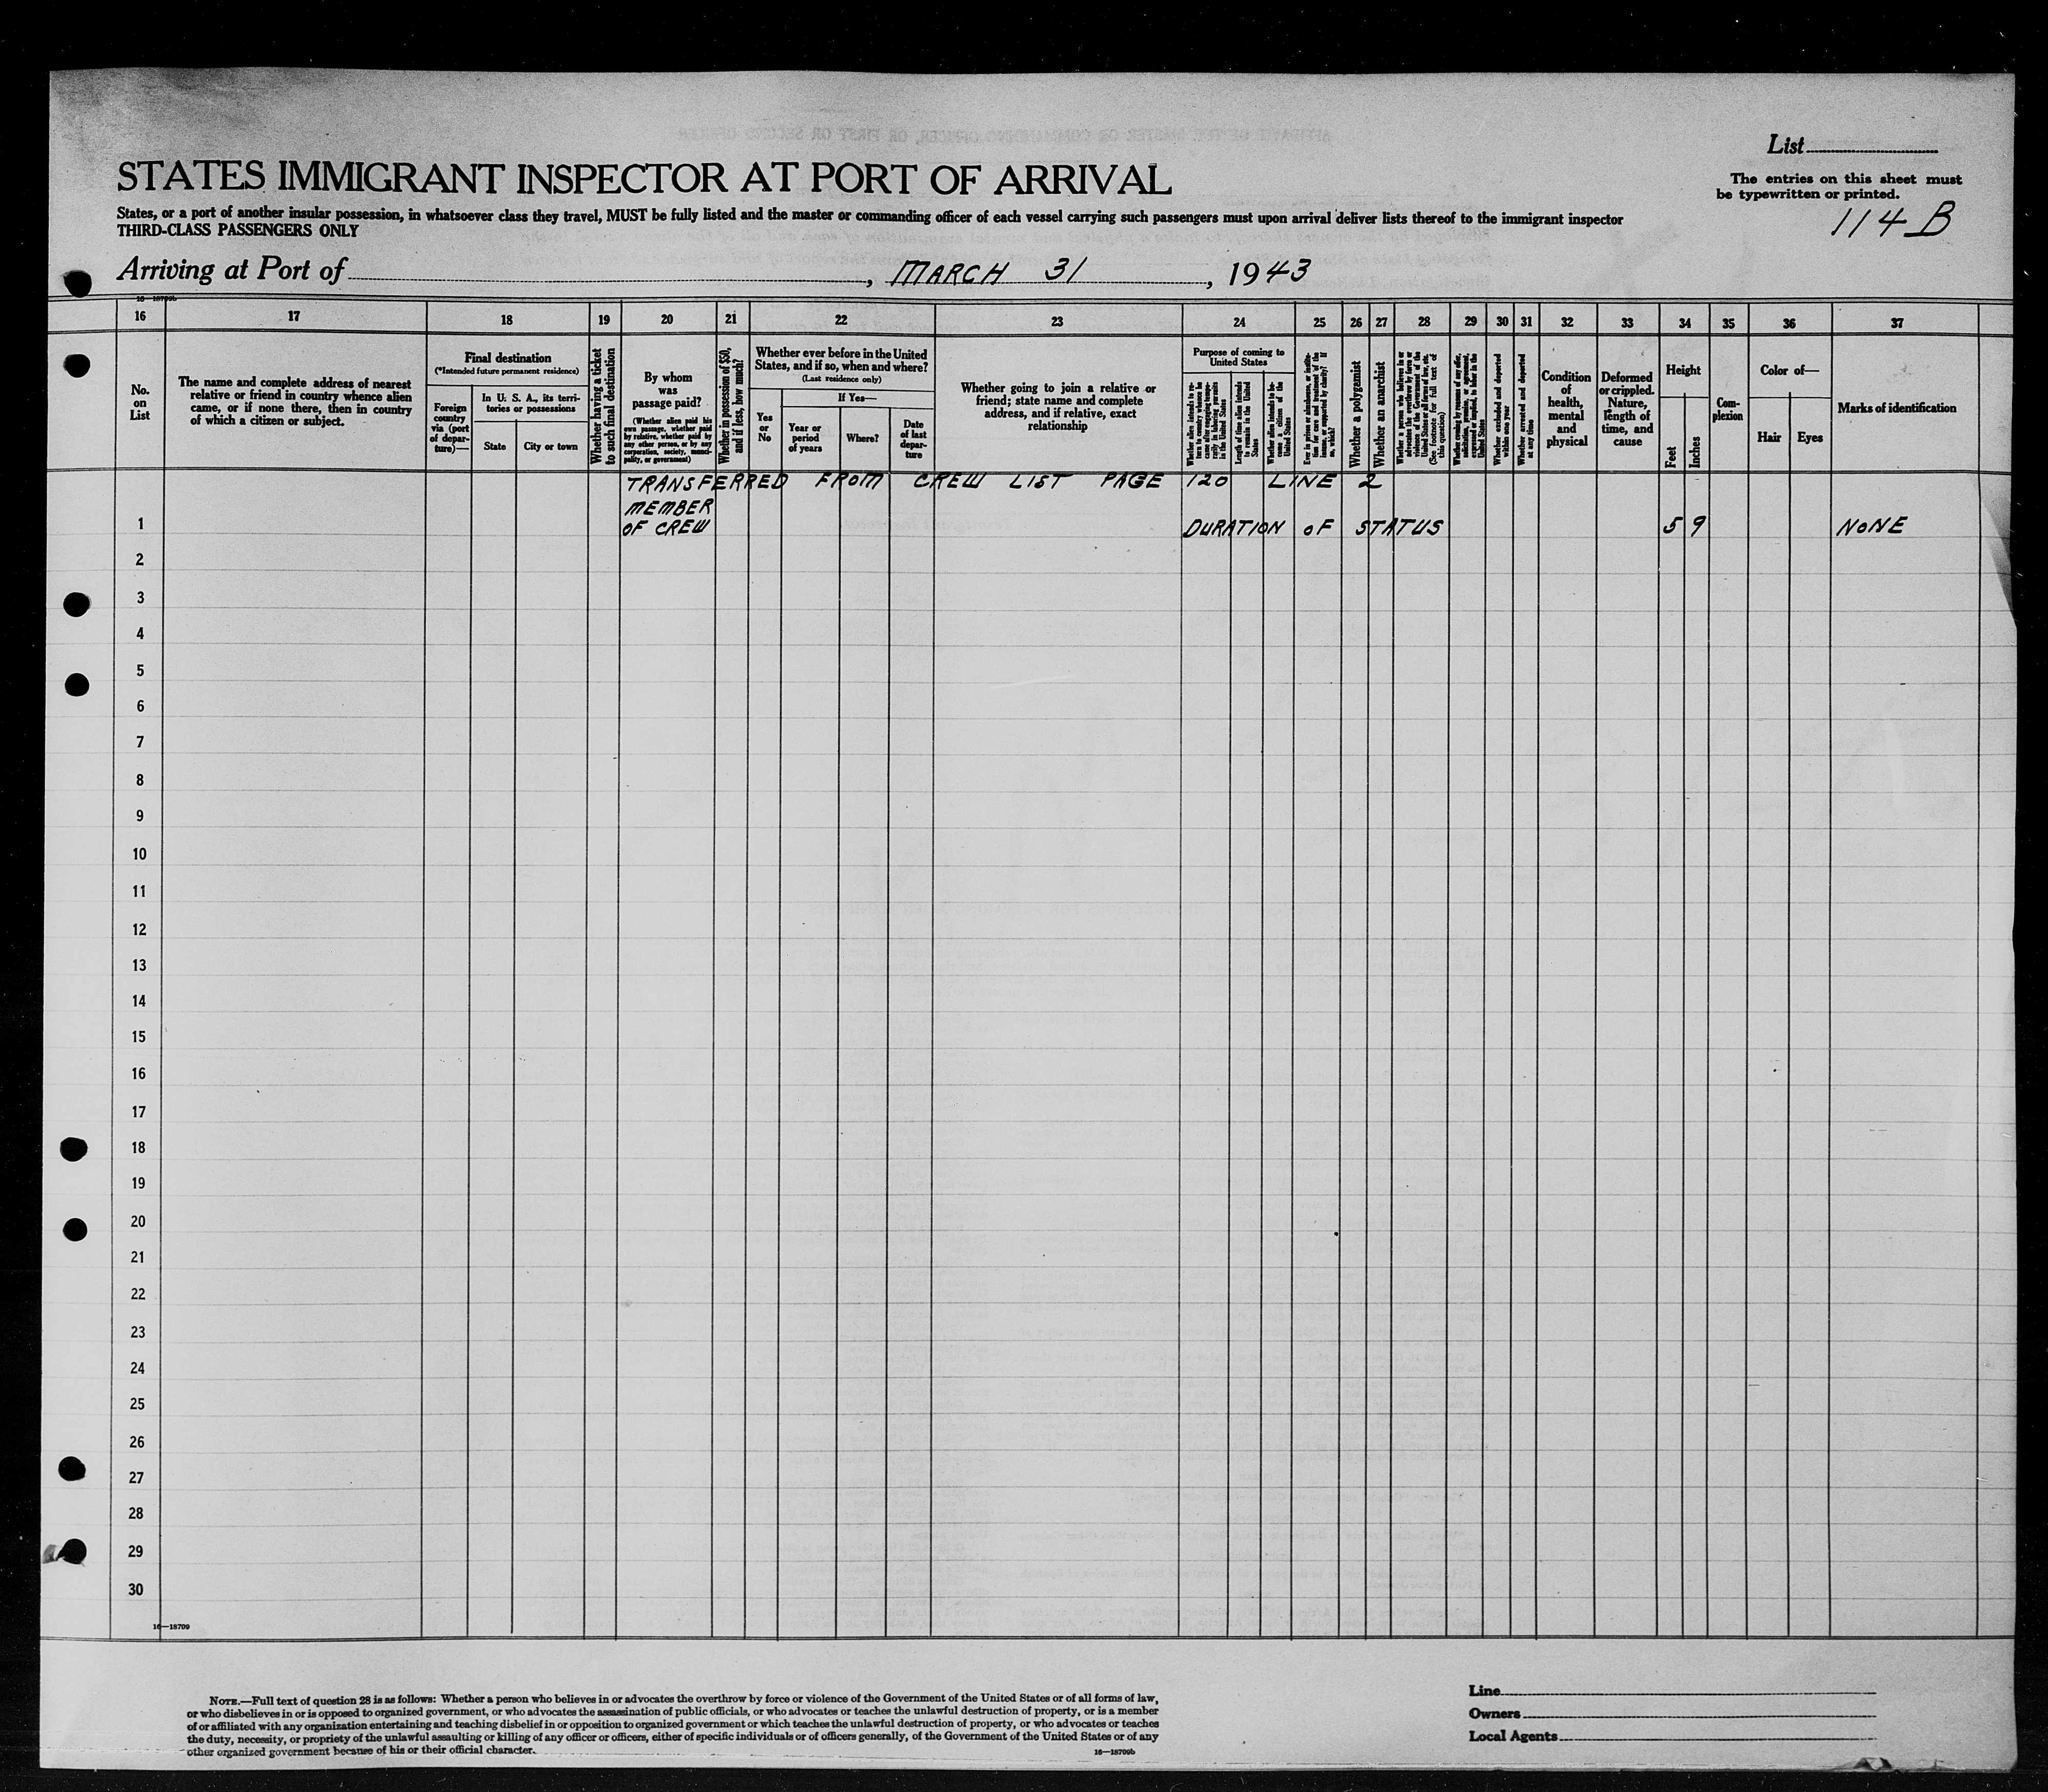 List
The entries on this sheet must
be typewritten or printed.
114 B
STATES IMMIGRANT INSPECTOR AT PORT OF ARRIVAL
States, or a port of another insular possession, in whatsoever class they travel, MUST be fully listed and the master or commanding officer of each vessel carrying such passengers must upon arrival deliver lists thereof to the immigrant inspector
THIRD-CLASS PASSENGERS ONLY
Arriving at Port of , MARCH 31 , 1943
16 17 18 19 20 21 22 23 24 25 26 27 28 29 30 31 32 33 34 35 36 37
No.
on
List
The name and complete address of nearest
relative or friend in country whence alien
came, or if none there, then in country
of which a citizen or subject.
Final destination
(*Intended future permanent residence)
Foreign
country
via (port
of depar-
ture)—
In U. S. A., its terri-
tories or possessions
State
City or town
Whether having a ticket
to such final destination
By whom
was
passage paid?
(Whether alien paid his
own passage, whether paid
by relative, whether paid by
any other person, or by any
corporation, society, munici-
pality, or government)
Whether in possession of $50,
and if less, how much?
Whether ever before in the United
States, and if so, when and where?
(Last residence only)
Yes
or
No
If Yes—
Year or
period
of years
Where?
Date
of last
depar-
ture
Whether going to join a relative or
friend; state name and complete
address, and if relative, exact
relationship
Purpose of coming to
United States
Whether alien intends to re-
turn to country whence he
came after engaging tempo-
rarily in laboring pursuits
in the United States
Length of time alien intends
to remain in the United
States
Whether alien intends to be-
come a citizen of the
United States
Whether a polygamist
Whether an anarchist
Whether a person who believes in or
advocates the overthrow by force or
violence of the Government of the
United States or all forms of law, etc.
(See footnote for full text of
this question)
Whether excluded and deported
within one year
Whether arrested and deported
at any time
Condition
of
health,
mental
and
physical
Deformed
or crippled.
Nature,
length of
time, and
cause
Height
Feet
Inches
Com-
plexion
Color of—
Hair
Eyes
Marks of identification
TRANSFERRED FROM CREW LIST PAGE 120 LINE 2
MEMBER
1 OF CREW DURATION OF STATUS 5 9 NONE
2
3
4
5
6
7
8
9
10
11
12
13
14
15
16
17
18
19
20
21
22
23
24
25
26
27
28
29
30
16—18709
NOTE.—Full text of question 28 is as follows: Whether a person who believes in or advocates the overthrow by force or violence of the Government of the United States or of all forms of law,
or who disbelieves in or is opposed to organized government, or who advocates the assassination of public officials, or who advocates or teaches the unlawful destruction of property, or is a member
of or affiliated with any organization entertaining and teaching disbelief in or opposition to organized government or which teaches the unlawful destruction of property, or who advocates or teaches
the duty, necessity, or propriety of the unlawful assaulting or killing of any officer or officers, either of specific individuals or of officers generally, of the Government of the United States or of any
other organized government because of his or their official character.
16—18709b
Line
Owners
Local Agents